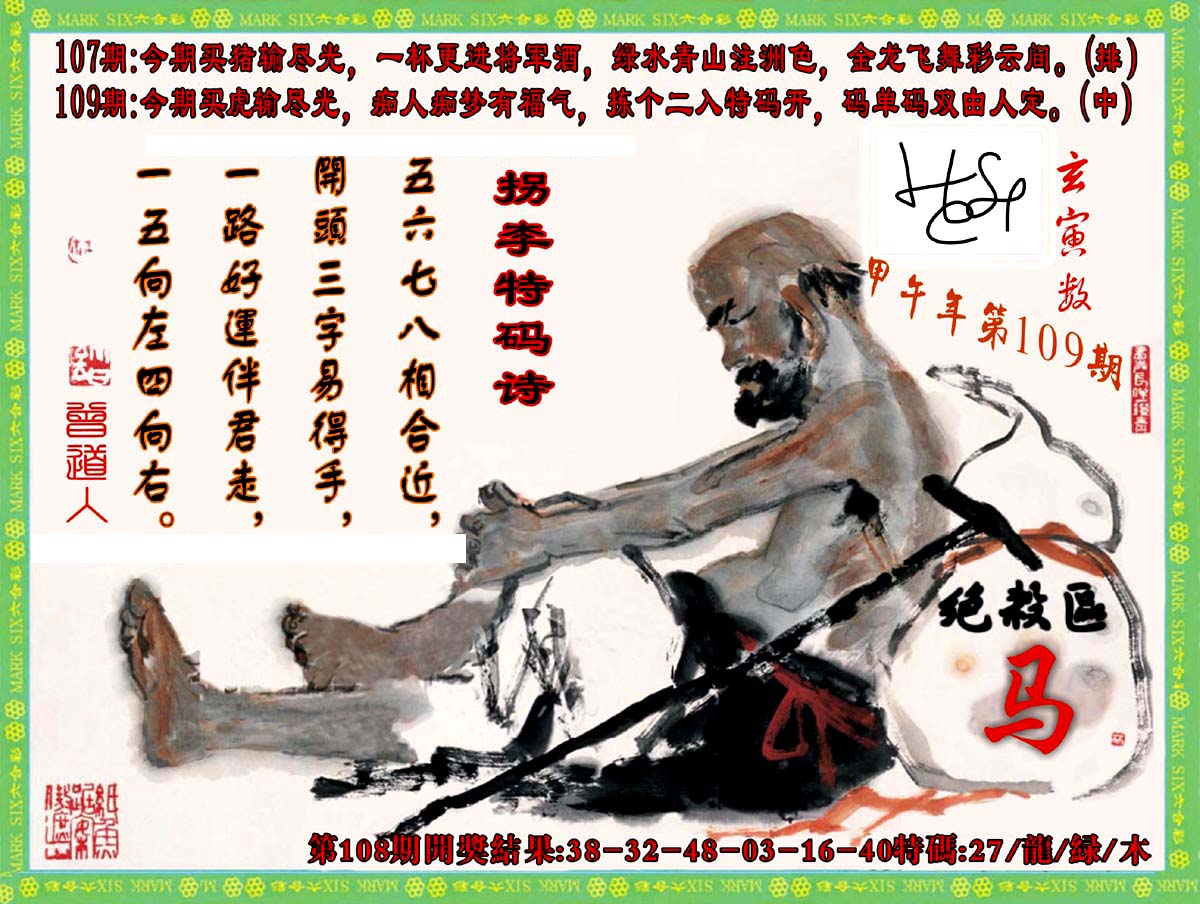 MARK SIX六合彩 MARK SIX六合彩 MARK SIX六合彩 MARK SIX六合彩 MARK SIX六合彩 MARK SIX六合彩
107期:今期买猪输尽光，一杯更进将军酒，绿水青山注洲色，金龙飞舞彩云间。(排)
109期:今期买虎输尽光，痴人痴梦有福气，拣个二入特码开，码单码双由人定。(中)
玄寅数
甲午年第109期
拐李特码诗
五六七八相合近，
開頭三字易得手，
一路好運伴君走，
一五向左四向右。
曾道人
绝殺区
马
第108期開獎結果:38-32-48-03-16-40特碼:27/龍/緑/木